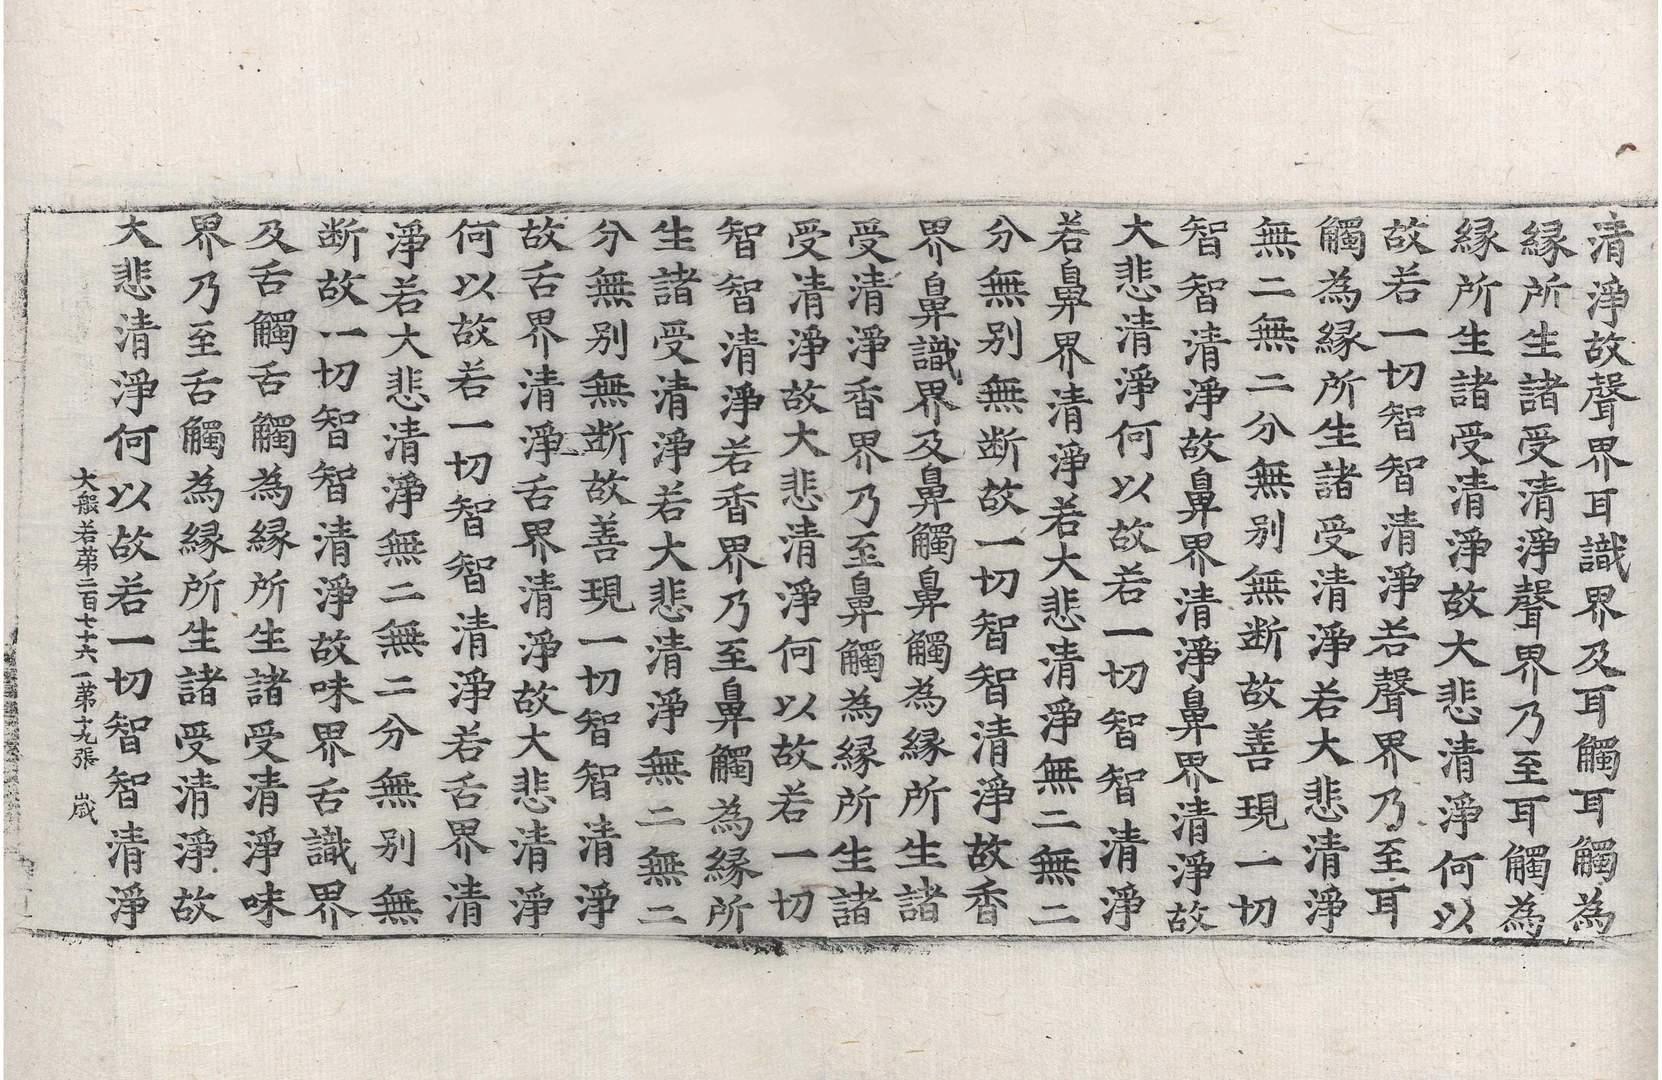 清淨故聲界耳識界及耳觸耳觸為
縁所生諸受清淨聲界乃至耳觸為
縁所生諸受清淨故大悲清淨何以
故若一切智智清淨若聲界乃至耳
觸為縁所生諸受清淨若大悲清淨
無二無二分無别無断故善現一切
智智清淨故鼻界清淨鼻界清淨故
大悲清淨何以故若一切智智清淨
若鼻界清淨若大悲清淨無二無二
分無别無断故一切智智清淨故香
界鼻識界及鼻觸鼻觸為縁所生諸
受清淨香界乃至鼻觸為縁所生諸
受清淨故大悲清淨何以故若一切
智智清淨若香界乃至鼻觸為縁所
生諸受清淨若大悲清淨無二無二
分無别無断故善現一切智智清淨
故舌界清淨舌界清淨故大悲清淨
何以故若一切智智清淨若舌界清
淨若大悲清淨無二無二分無别無
断故一切智智清淨故味界舌識界
及舌觸舌觸為縁所生諸受清淨味
界乃至舌觸為縁所生諸受清淨故
大悲清淨何以故若一切智智清淨
大般若苐二百七十六一苐十九張 歲